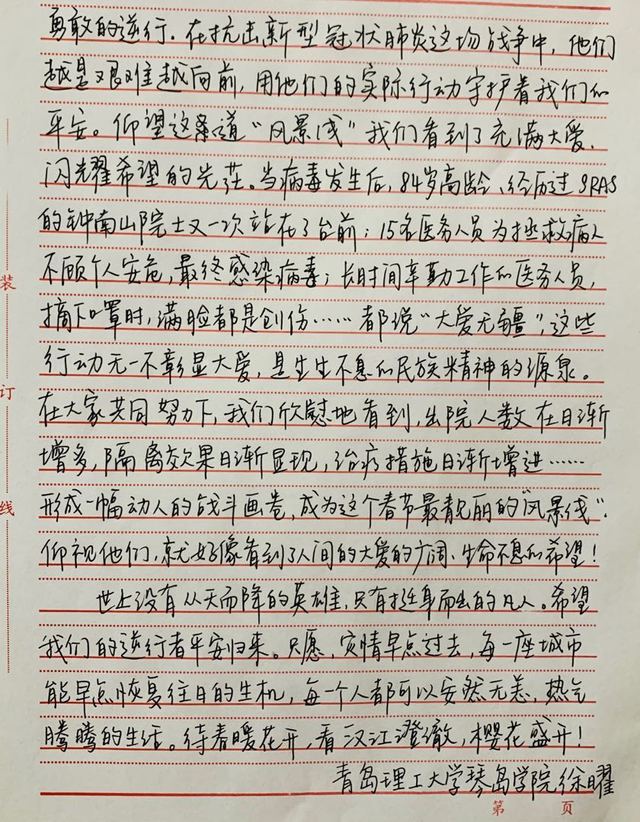 勇敢的逆行。在抗击新型冠状肺炎这场战争中，他们
越是艰难越向前，用他们的实际行动守护着我们的
平安。仰望这条道“风景线”我们看到了充满大爱、
闪光耀希望的光茫。当病毒发生后，84岁高龄、经历过SRAS
的钟南山院士又一次站在了台前；15名医务人员为拯救病人
不顾个人安危，最终感染病毒；长时间辛勤工作的医务人员，
摘下口罩时，满脸都是创伤……都说“大爱无疆”，这些
行动无一不彰显大爱，是生生不息的民族精神的源泉。
在大家共同努力下，我们欣慰地看到，出院人数在日渐
增多，隔离效果日渐显现，治疗措施日渐增进……
形成一幅动人的战斗画卷，成为这个春节最靓丽的“风景线”。
仰视他们，就好像看到了人间的大爱的广阔、生命不息的希望！
世上没有从天而降的英雄，只有挺身而出的凡人。希望
我们的逆行者平安归来。只愿，灾情早点过去，每一座城市
能早点恢复往日的生机，每一个人都可以安然无恙，热气
腾腾的生活。待春暖花开，看汉江澄澈，樱花盛开！
青岛理工大学琴岛学院徐曜
装
订
线
第 页